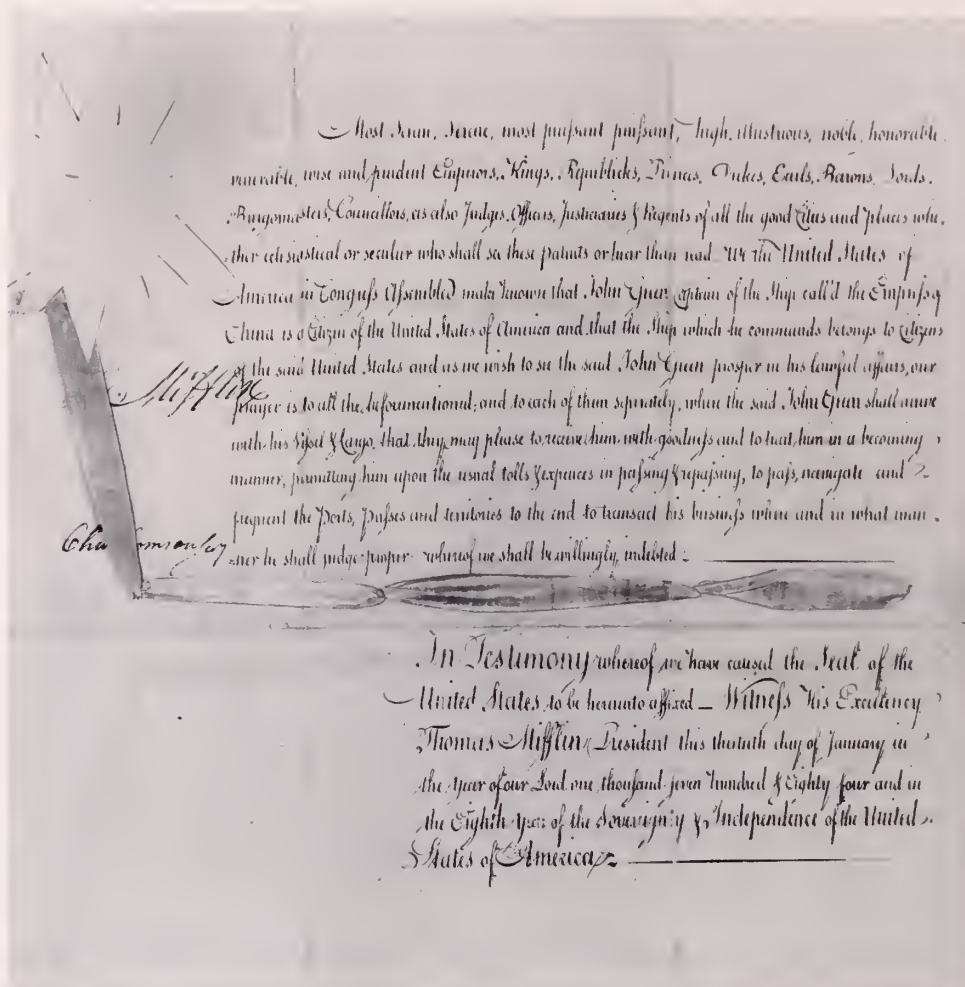 Most Seren, Serene, most puissant puissant, high, illustrious, noble, honorable
venerable, wise and prudent Emperors, Kings, Republicks, Princes, Dukes, Earls, Barons, Lords.
Burgomasters, Councillors, as also Judges, Officers, Justiciaries & Regents of all the good Cities and places whe-
ther eclesiastical or secular who shall see these patents or hear them read We the United States of
America in Congress Assembled make known that John Green Captain of the Ship call'd the Empress of
China is a Citizen of the United States of America and that the Ship which he commands belongs to Citizens
of the said United States and as we wish to see the said John Green prosper in his lawful affairs, our
Mifflin
prayer is to all the beforementioned, and to each of them seperately, when the said John Green shall arrive
with his Vessel & Cargo, that they may please to receive him with goodness and to treat him in a becoming
manner, permitting him upon the usual tolls & expences in passing & repassing, to pass, navigate and
frequent the Ports, Passes and territories to the end to transact his business where and in what man-
Cha omson secy
ner he shall judge proper whereof we shall be willingly indebted.
In Testimony whereof we have caused the Seal of the
United States to be hereunto affixed – Witness His Excellency
Thomas Mifflin President this thirtieth day of January in
the Year of our Lord one thousand seven hundred & Eighty four and in
the Eighth Year of the Sovereignty & Independence of the United
States of America